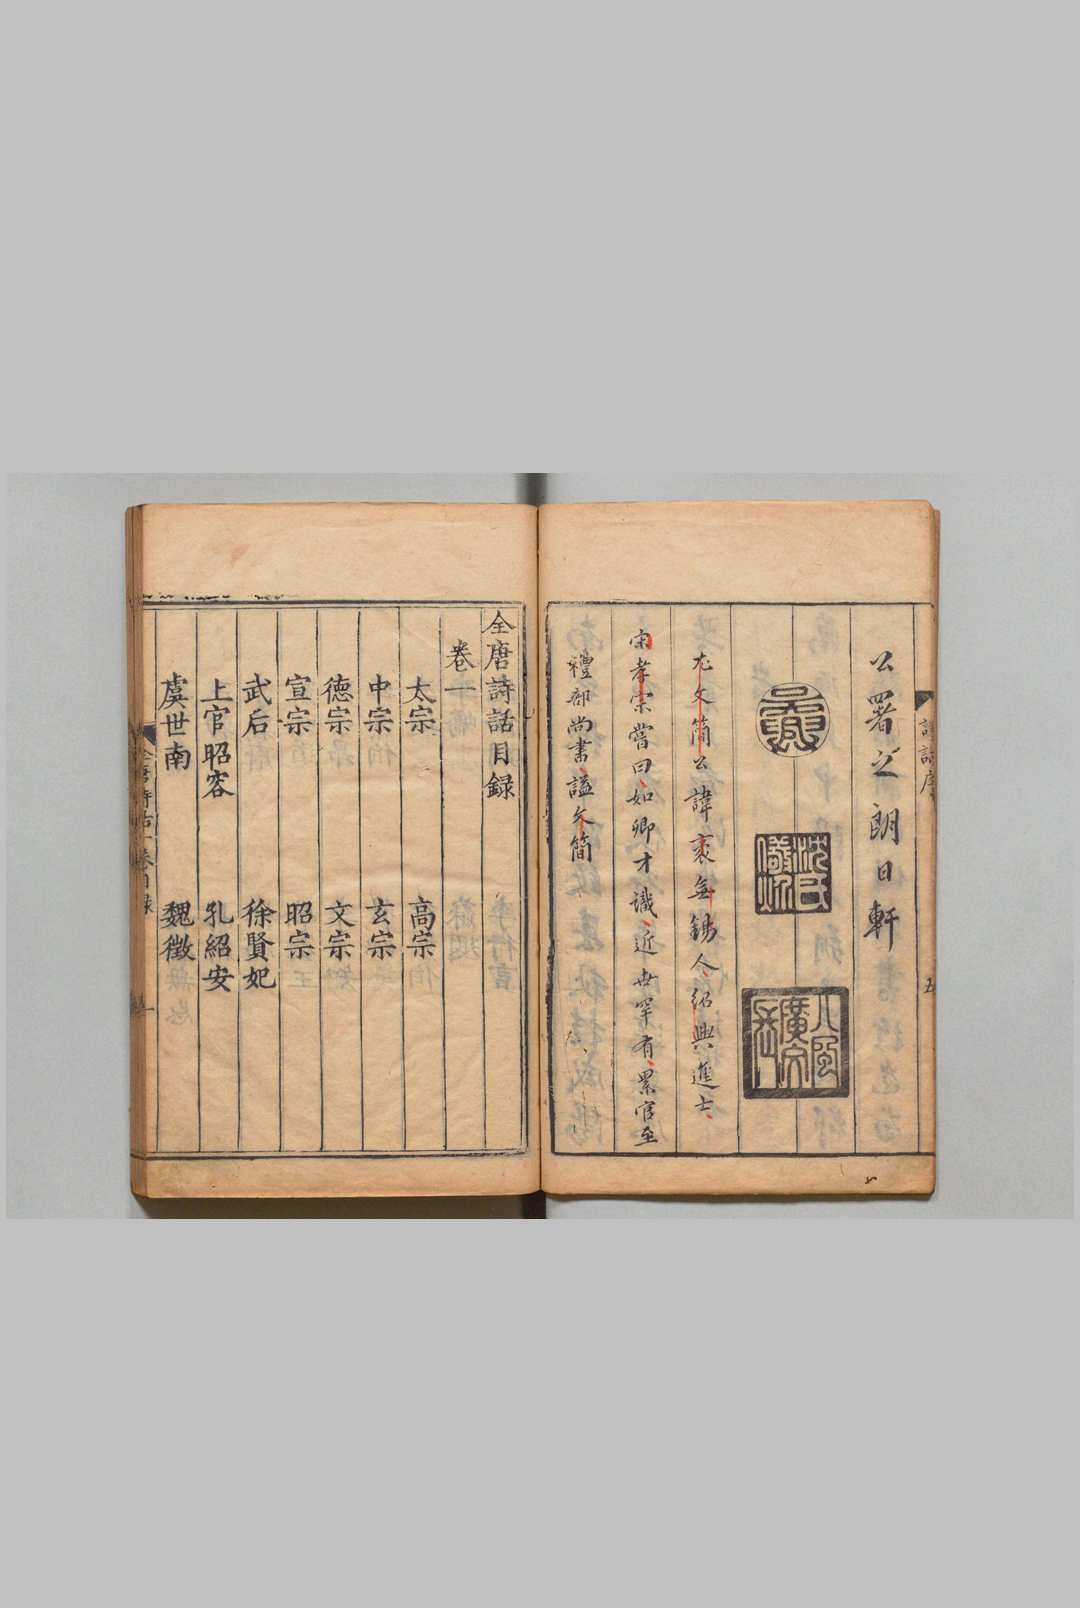 公署之朗日軒
沈氏
尤文簡公諱袤無錫人紹興進士
宋孝宗嘗曰如卿才識近世罕有累官至
禮部尚書謚文簡
全唐詩話目録
卷一
太宗 高宗
中宗 玄宗
德宗 文宗
宣宗 昭宗
武后 徐賢妃
上官昭容 孔紹安
虞世南 魏徵